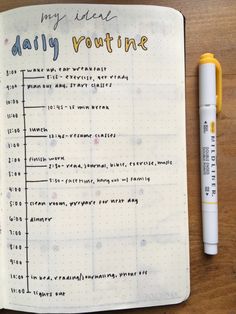 my ideal
daily routine
8:00 wake up, eat breakfast
8:15 - exercise, get ready
9:00 plan out day, start classes
10:00
10:45 - 15 min break
11:00
12:00 lunch
12:45 - resume classes
1:00
2:00 finish work
2:30 - read, journal, bible, exercise, music
3:00
3:30 - facetime, hang out w/ family
4:00
5:00 clean room, prepare for next day
6:00 dinner
7:00
8:00
9:00
10:00
in bed, reading/journaling, phone off
11:00
lights out
MILDLINER